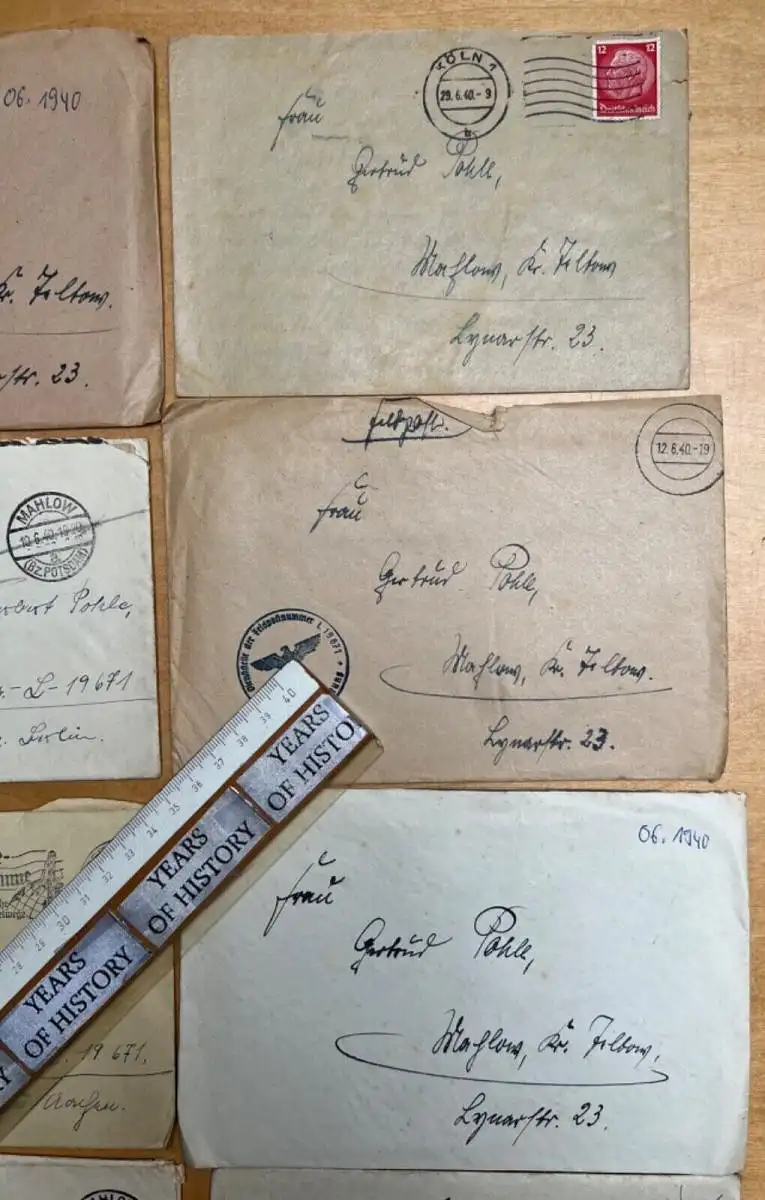 06. 1940
Kr. Teltow.
str. 23.
KÖLN 1
29.6.40.-9
a
12 12
Deutsches Reich
Frau
Gertrud Pohle,
Mahlow, Kr. Teltow
Lynarstr. 23.
MAHLOW
10.6.40.
(BZ. POTSDAM)
Pohle,
L-19671
Berlin.
Feldpost.
12.6.40.-19
Frau
Gertrud Pohle,
Dienststelle der Feldpostnummer L 19671
Mahlow, Kr. Teltow.
Lynarstr. 23.
28 29 30 31 32 33 34 35 36 37 38 39 40
YEARS
OF HISTO
YEARS
OF HISTORY
YEARS
OF HISTORY
19671.
Aachen.
06. 1940
Frau
Gertrud Pohle,
Mahlow, Kr. Teltow,
Lynarstr. 23.